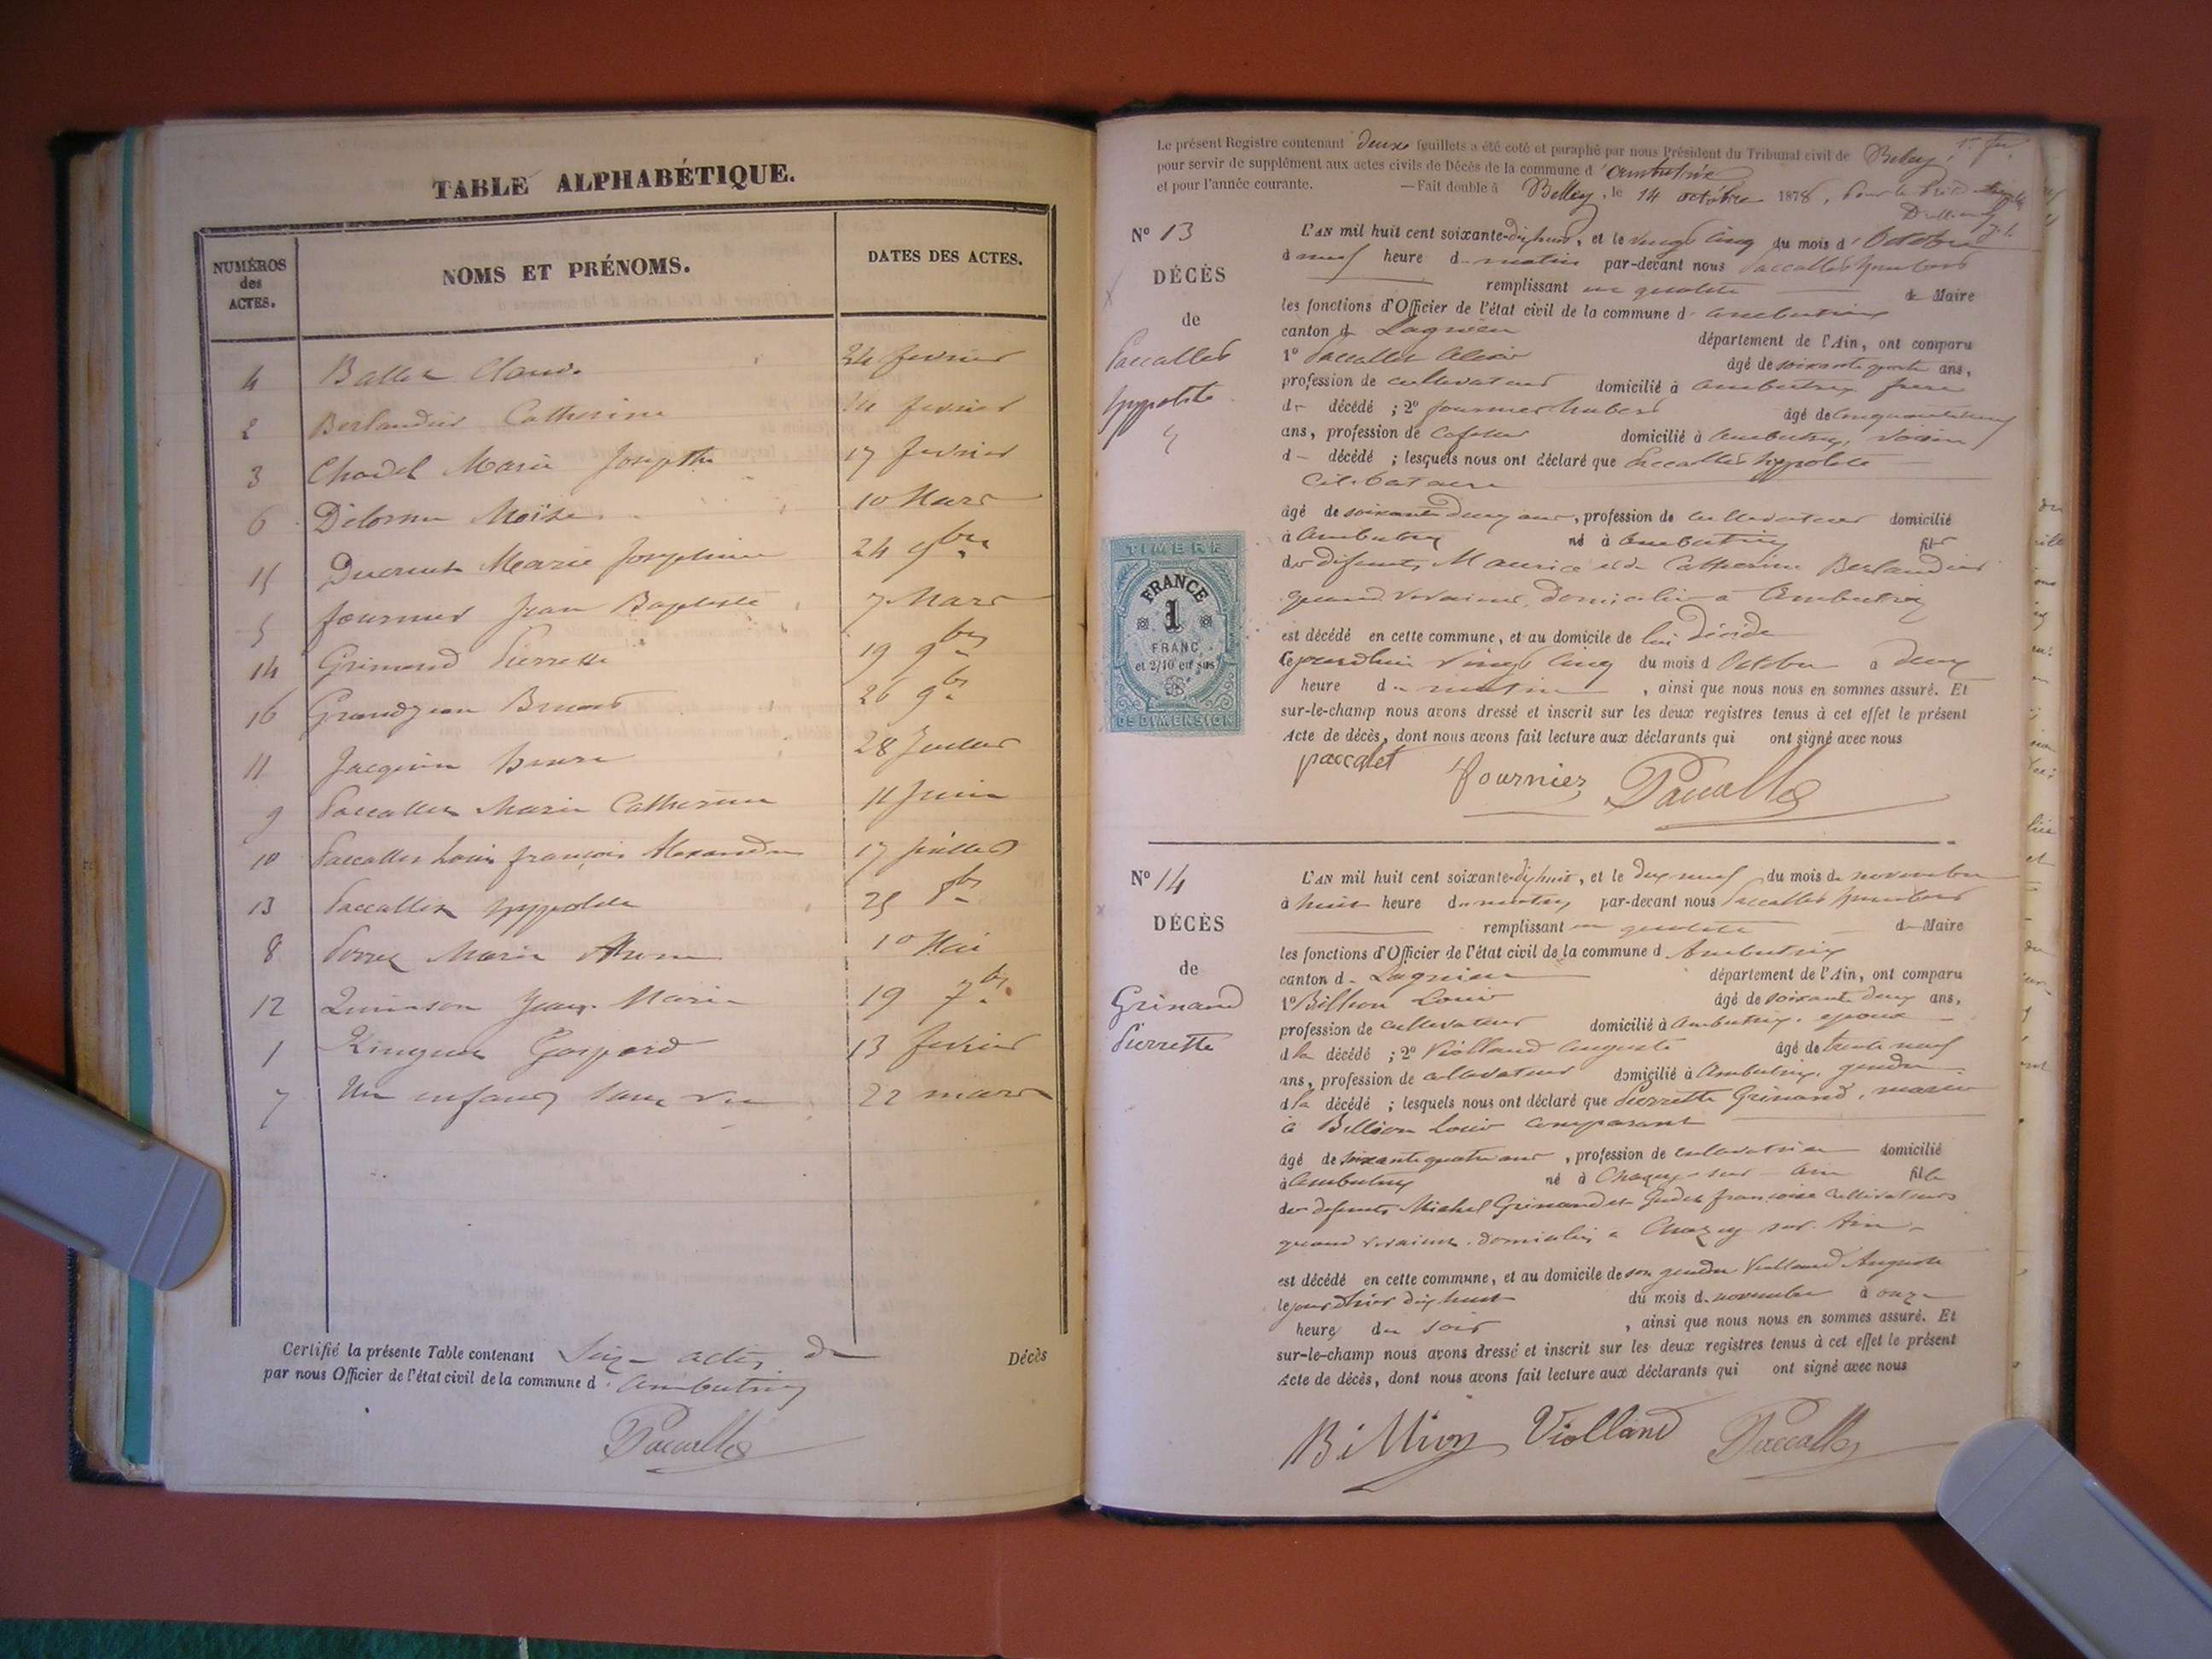 TABLE ALPHABÉTIQUE.
NUMÉROS des ACTES. NOMS ET PRÉNOMS. DATES DES ACTES.
4 Ballet Claude 24 fevrier
2 Berlandier Catherine 14 fevrier
3 Chadel Marie Josephte 17 fevrier
6 Delorme Moïse 10 Mars
15 Marie Josephine 24 9bre
5 fournier Jean Baptiste 7 Mars
14 Grimand Pierrette 19 9bre
16 Grandjean Benoit 26 9bre
11 Jacquin 28 Juillet
9 Paccallet Marie Catherine 11 Juin
10 Paccallet Louis françois Alexandre 17 juillet
13 Paccallet hyppolite 25 8bre
8 Marie 10 Mai
12 Quinson Jean Marie 19 7bre
1 Ringuet Gaspard 13 fevrier
7 Un enfant sans vie 22 mars
Certifié la présente Table contenant Seize actes de Décès
par nous Officier de l'état civil de la commune d'Ambutrix
Paccallet
Le présent Registre contenant deux feuillets a été coté et paraphé par nous Président du Tribunal civil de Belley,
pour servir de supplément aux actes civils de Décès de la commune d'Ambutrix
et pour l'année courante. — Fait double à Belley, le 14 octobre 1878,
N° 13
DÉCÈS
de
Paccallet
hyppolite
L'AN mil huit cent soixante-dix huit, et le vingt cinq du mois d'Octobre
à neuf heure du matin par-devant nous Paccallet
remplissant en qualité de Maire
les fonctions d'Officier de l'état civil de la commune d'ambutrix
canton de Lagnieu département de l'Ain, ont comparu
1° Paccallet Alexis âgé de soixante quatre ans,
profession de cultivateur domicilié à ambutrix frere
du décédé ; 2° fournier hubert âgé de cinquante neuf
ans, profession de domicilié à Ambutrix, voisin
du décédé ; lesquels nous ont déclaré que Paccallet hyppolite
Célibataire
âgé de soixante deux ans, profession de cultivateur domicilié
à Ambutrix né à Ambutrix fils
des défunts Maurice et de Catherine Berlandier
quand vivaient domiciliés à Ambutrix
est décédé en cette commune, et au domicile de lui décédé
cejourdhui vingt cinq du mois d'Octobre à deux
heure du matin, ainsi que nous nous en sommes assuré. Et
sur-le-champ nous avons dressé et inscrit sur les deux registres tenus à cet effet le présent
Acte de décès, dont nous avons fait lecture aux déclarants qui ont signé avec nous
paccalet Fournier Paccallet
TIMBRE
FRANCE
1
FRANC
et 2/10 en sus
DE DIMENSION
N° 14
DÉCÈS
de
Grinand
Pierrette
L'AN mil huit cent soixante-dix huit, et le dix neuf du mois de novembre
à huit heure du matin par-devant nous Paccallet
remplissant en qualité de Maire
les fonctions d'Officier de l'état civil de la commune d'Ambutrix
canton de Lagnieu département de l'Ain, ont comparu
1° Billion Louis âgé de soixante deux ans,
profession de cultivateur domicilié à ambutrix, epoux
de la décédé ; 2° Violland Auguste âgé de trente neuf
ans, profession de cultivateur domicilié à Ambutrix, gendre
de la décédé ; lesquels nous ont déclaré que Pierrette Grinand, mariée
à Billion Louis comparant
âgé de soixante quatre ans, profession de cultivatrice domicilié
à Ambutrix né à Chazey-sur-Ain fille
des défunts Michel Grinand et françoise Cultivateurs
quand vivaient domiciliés à Chazey sur Ain
est décédé en cette commune, et au domicile de son gendre Violland Auguste
le jour dhier dix huit du mois de novembre à onze
heure du soir, ainsi que nous nous en sommes assuré. Et
sur-le-champ nous avons dressé et inscrit sur les deux registres tenus à cet effet le présent
Acte de décès, dont nous avons fait lecture aux déclarants qui ont signé avec nous
Billion Violland Paccallet